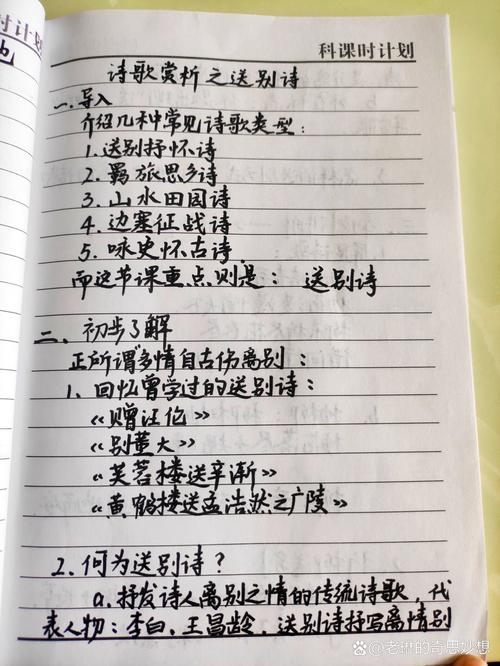 科课时计划
诗歌赏析之送别诗
一.导入
介绍几种常见诗歌类型：
1.送别抒怀诗
2.羁旅思乡诗
3.山水田园诗
4.边塞征战诗
5.咏史怀古诗.
而这节课重点则是：送别诗
二、初步了解
正所谓"多情自古伤离别：
1、回忆曾学过的送别诗：
《赠汪伦》
《别董大》
《芙蓉楼送辛渐》
《黄鹤楼送孟浩然之广陵》
2.何为送别诗？
a.抒发诗人离别之情的传统诗歌，代
表人物：李白、王昌龄，送别诗抒写离情别
@老琳的奇思妙想